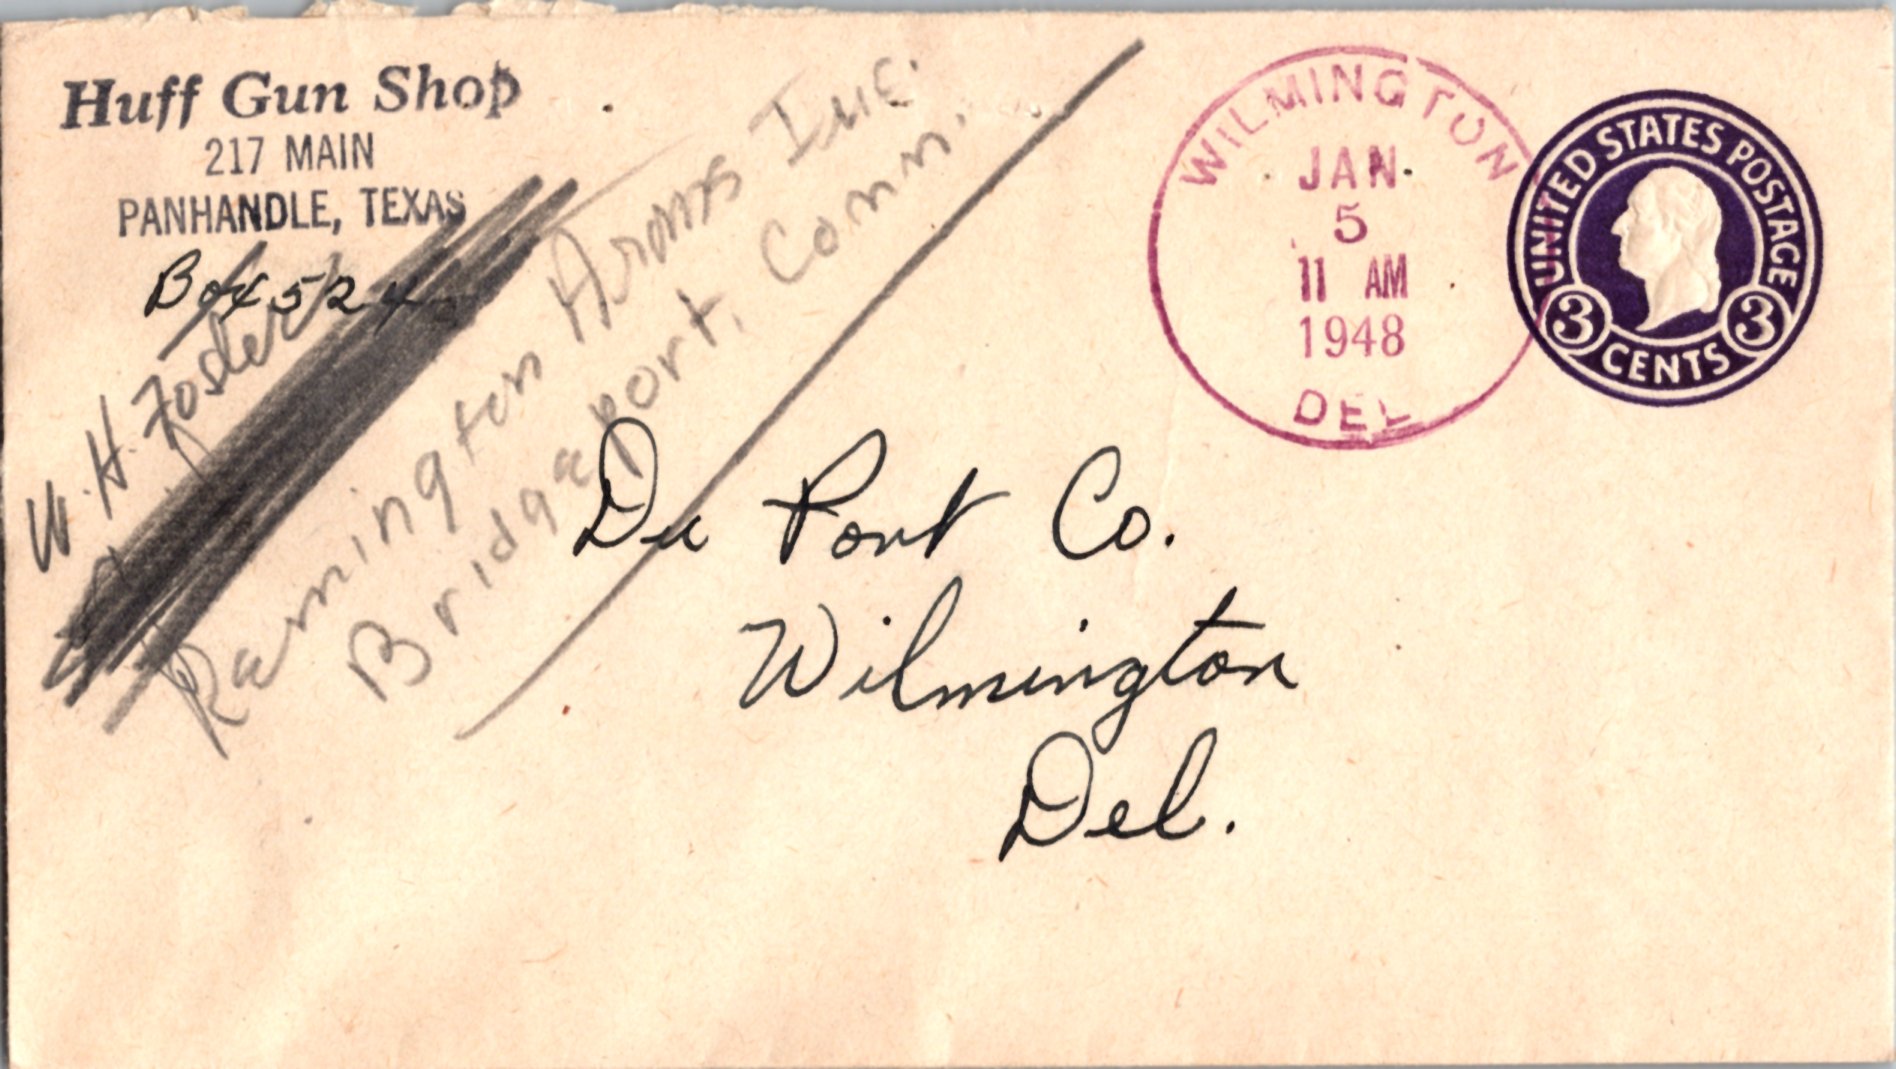 Huff Gun Shop
217 MAIN
PANHANDLE, TEXAS
Box 524
W. H. Foster
Remington Arms Inc.
Bridgeport, Conn.
WILMINGTON
JAN
5
11 AM
1948
DEL
UNITED STATES POSTAGE
3 CENTS 3
Du Pont Co.
Wilmington
Del.